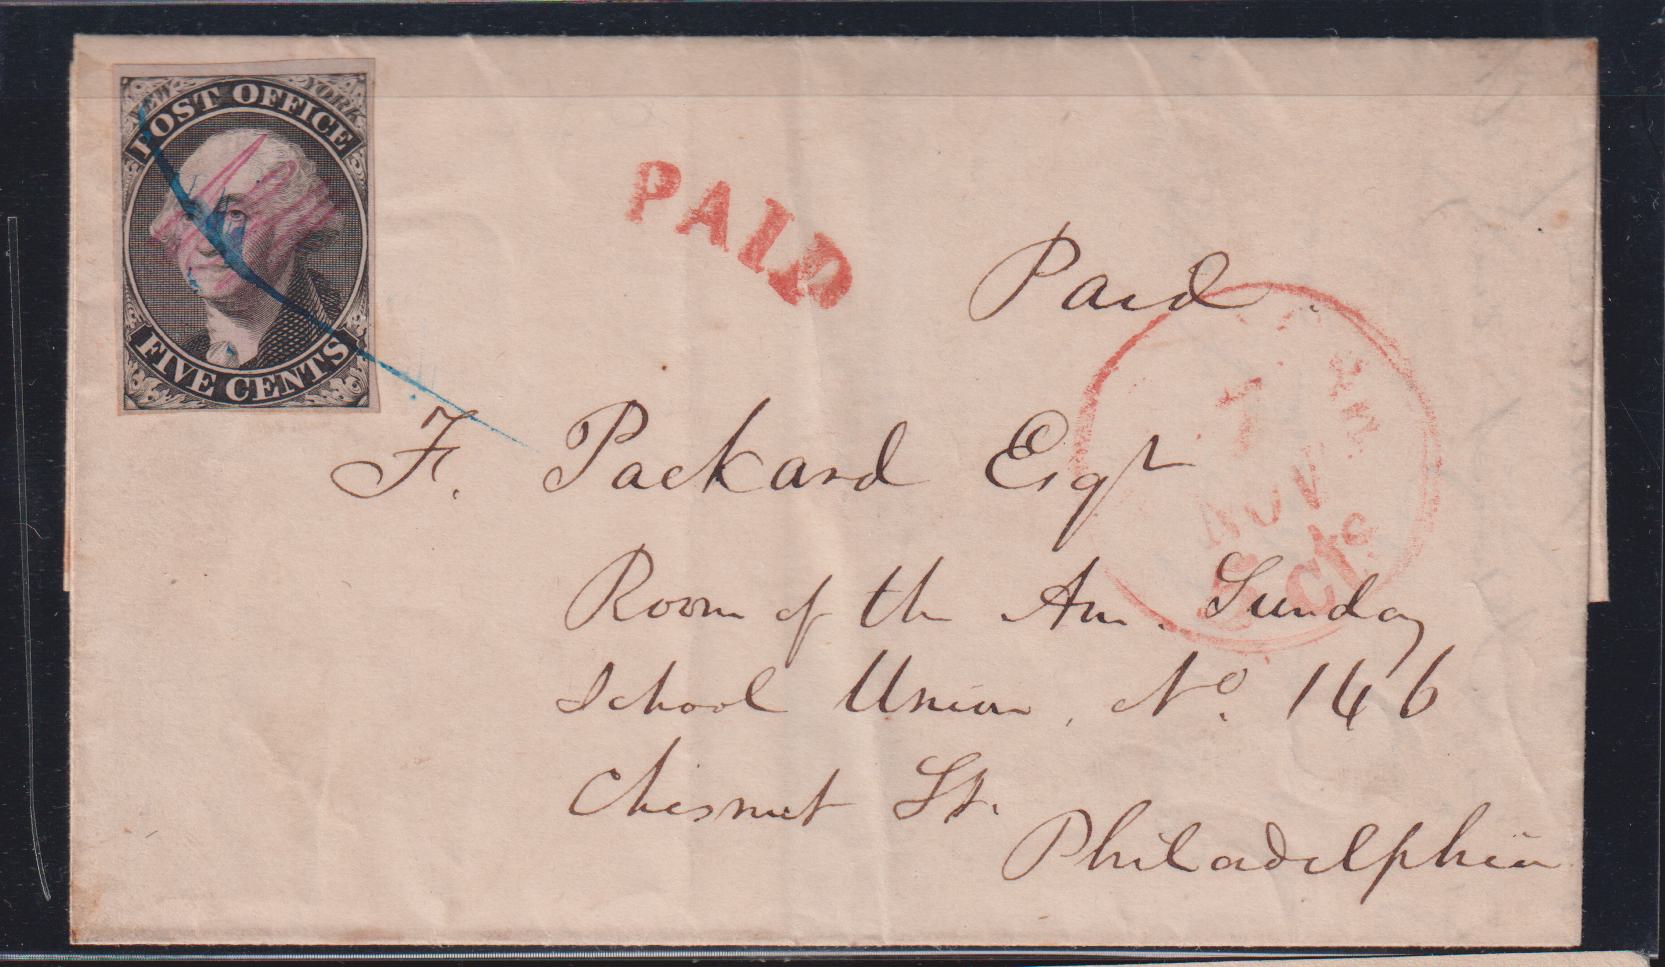 NEW YORK
POST OFFICE
FIVE CENTS
PAID
Paid
7
NOV
5 cts
F. Packard Esqr
Room of the Am. Sunday
School Union, No. 146
Chesnut St.
Philadelphia